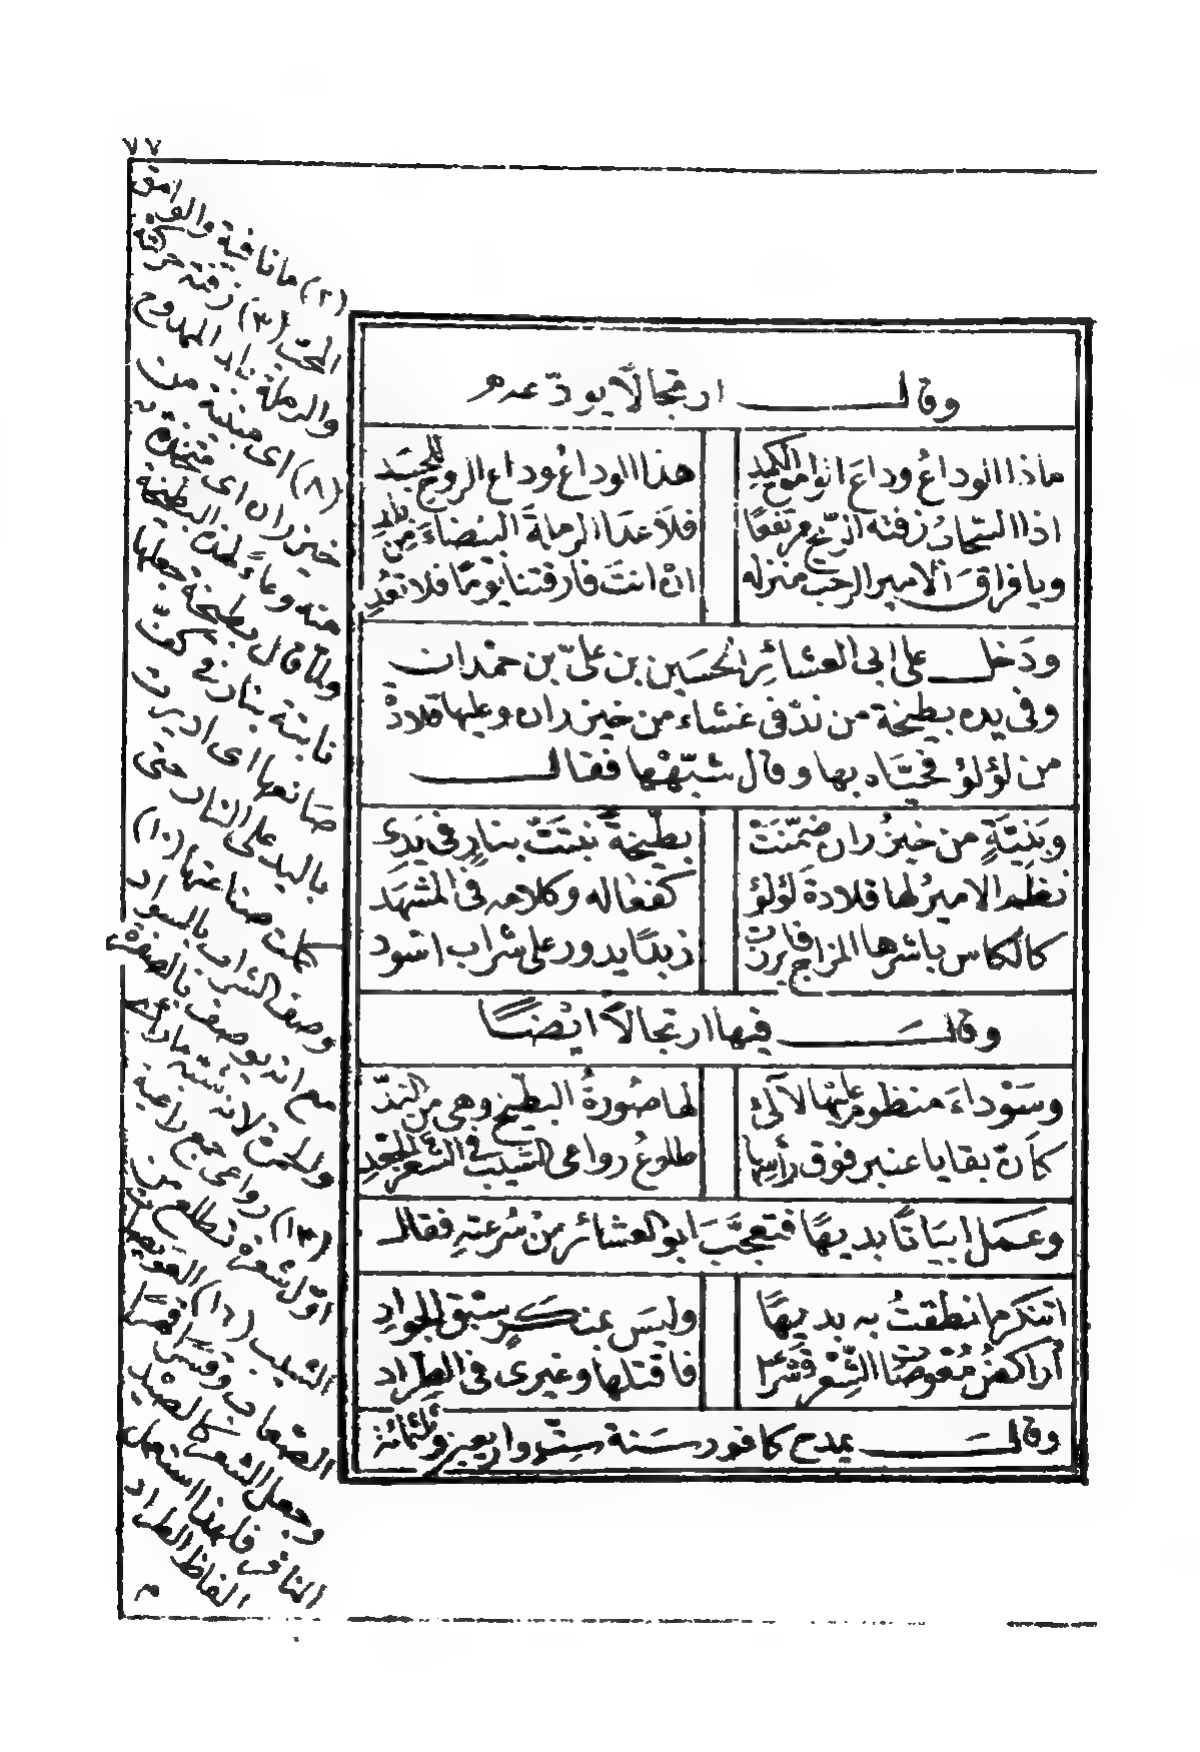 ٧٧
وقال ارتجالا يودّعه
ماذا الوداعُ وداعَ الوامق الكمد هذا الوداعُ وداع الروح للجسد
اذا السّحابُ زفته الرّيح مرتفعًا فلا عدا الرملةَ البيضاءَ من بلد
ويا فراقَ الامير الرحب منزله ان انتَ فارقتنا يومًا فلا تعُد
ودَخل على ابى العشائِر الحُسَين بن علىّ بن حمْدان
وفى يده بطيخة من ندّ فى غشاء من خيزران وعليها قلادة
من لؤلؤ فحيّاه بها وقال شبّهْها فقال
وبَنيّةٍ من خيزُران ضمّنَتْ بطّيخةً نبتتْ بنارٍ فى يَدِى
نظم الاميرُ لها قلادة لؤلؤ كفعاله وكلامه فى المشهَد
كالكاس باشرها المزاج فابرزت زبدًا يدور على شراب اسْود
وقال فيها ارتجالاً ايْضًا
وسَوْداءَ منظوم عليْها لآلئ لها صُورةُ البطّيخ وهى من الندّ
كأنّ بقايا عنبر فوق رأسها طلوعُ رواعى الشيب فى الشعَر الجعد
وعَمل ابيَاتًا بديهًا فتعجّبَ ابو العشائر منْ سُرعتهِ فقال
اتنكر ما نطقتُ به بديهًا وليسَ بمنكرٍ سبْق الجوادِ
أراكضُ مُعْوِصَات الشّعْر قسْرًا فاقتلها وغيرى فى الطِراد
وقالَ يمدح كافور سَنة ستّ واربعين وثلثمائة
(٢) ما نافية والوامق
المحبّ (٣) زفته حركته
والرملة بلد الممدوح
(٨) اى مبنية من
خيزران اى متخذة
منه وعاءً لهذه البطيخة
ولما قال بطيخة جعلها
نابتة بنار فى كفّ
صانعها اى اديرت
باليد على النار حتى
كملت صناعتها (١٠)
وصف الشراب بالسواد
مع انه يوصف بالصفرة
والحمرة لانه شبّه
(١٣) رواعى جمع راعية
اوّل شعرة تطلع من
الشيب (١٦)
الصعاب وقسرا قهرا
وجعل الشعر كالصيد
النافر فلهذا استعمل
الفاظ الطراد
م